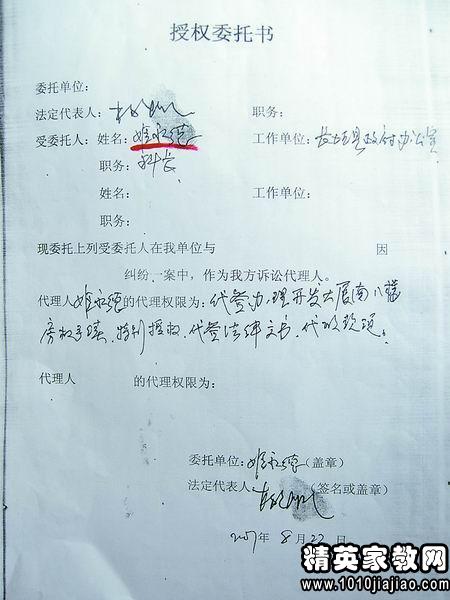 授权委托书
委托单位:
法定代表人: 职务:
受委托人: 姓名: 姬永德 工作单位: 长垣县政府办公室
职务: 科长
姓名: 工作单位:
职务:
现委托上列受委托人在我单位与 因
纠纷一案中，作为我方诉讼代理人。
代理人 姬永德 的代理权限为: 代签办理开发大厦南八
房权手续、特别授权、代签法律文书、代收款项。
代理人 的代理权限为:
委托单位: 姬永德 (盖章)
法定代表人: (签名或盖章)
2007年 8月 22日
精英家教网
http://www.1010jiajiao.com